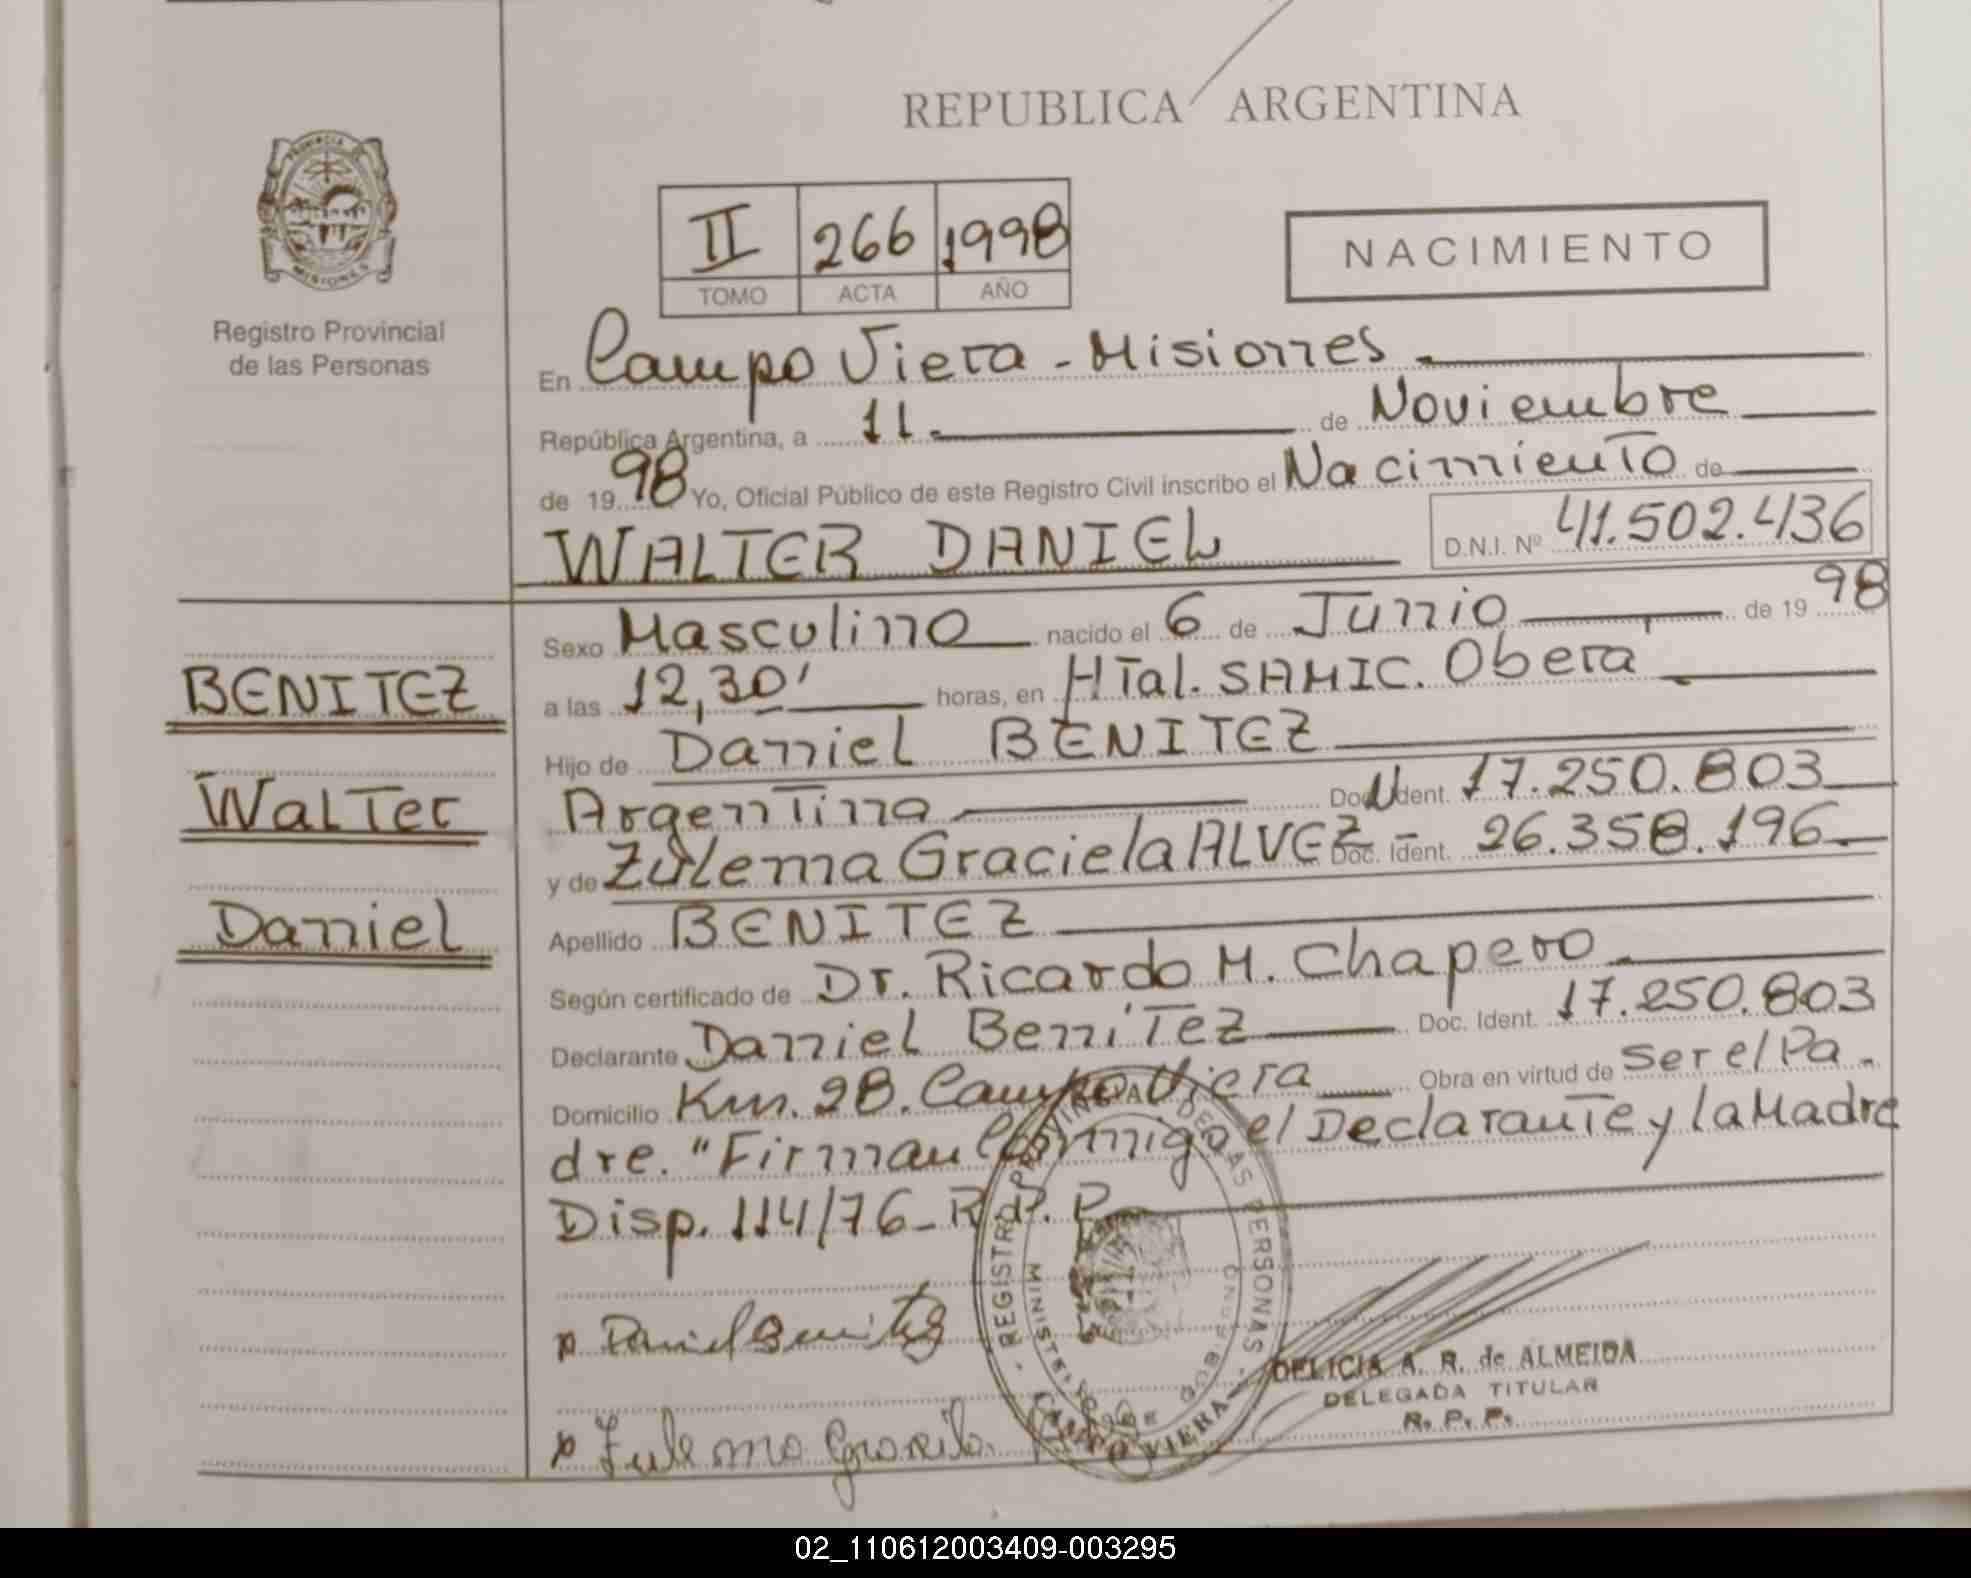 REPUBLICA ARGENTINA
PROVINCIA DE
MISIONES
Registro Provincial
de las Personas
II 266 1998
TOMO ACTA AÑO
NACIMIENTO
En Campo Viera - Misiones
República Argentina, a 11 de Noviembre
de 1998 Yo, Oficial Público de este Registro Civil inscribo el Nacimiento de
WALTER DANIEL D.N.I. Nº 41.502.436
BENITEZ
Walter
Daniel
Sexo Masculino nacido el 6 de Junio de 1998
a las 12,30' horas, en HTal. SAMIC. Obera
Hijo de Daniel BENITEZ
Argentina Doc. Ident. 17.250.803
y de Zulema Graciela ALVEZ Doc. Ident. 26.358.196
Apellido BENITEZ
Según certificado de Dr. Ricardo M. Chapero
Declarante Daniel Benitez Doc. Ident. 17.250.803
Domicilio Km. 28. Campo Viera Obra en virtud de ser el Pa-
dre. "Firman Conmigo el Declarante y la Madre
Disp. 114/76 - R. P. P.
Daniel Benitez
Zulema Graciela
REGISTRO PROVINCIAL DE LAS PERSONAS
CAMPO VIERA
DELICIA A. R. de ALMEIDA
DELEGADA TITULAR
R. P. P.
02_110612003409-003295